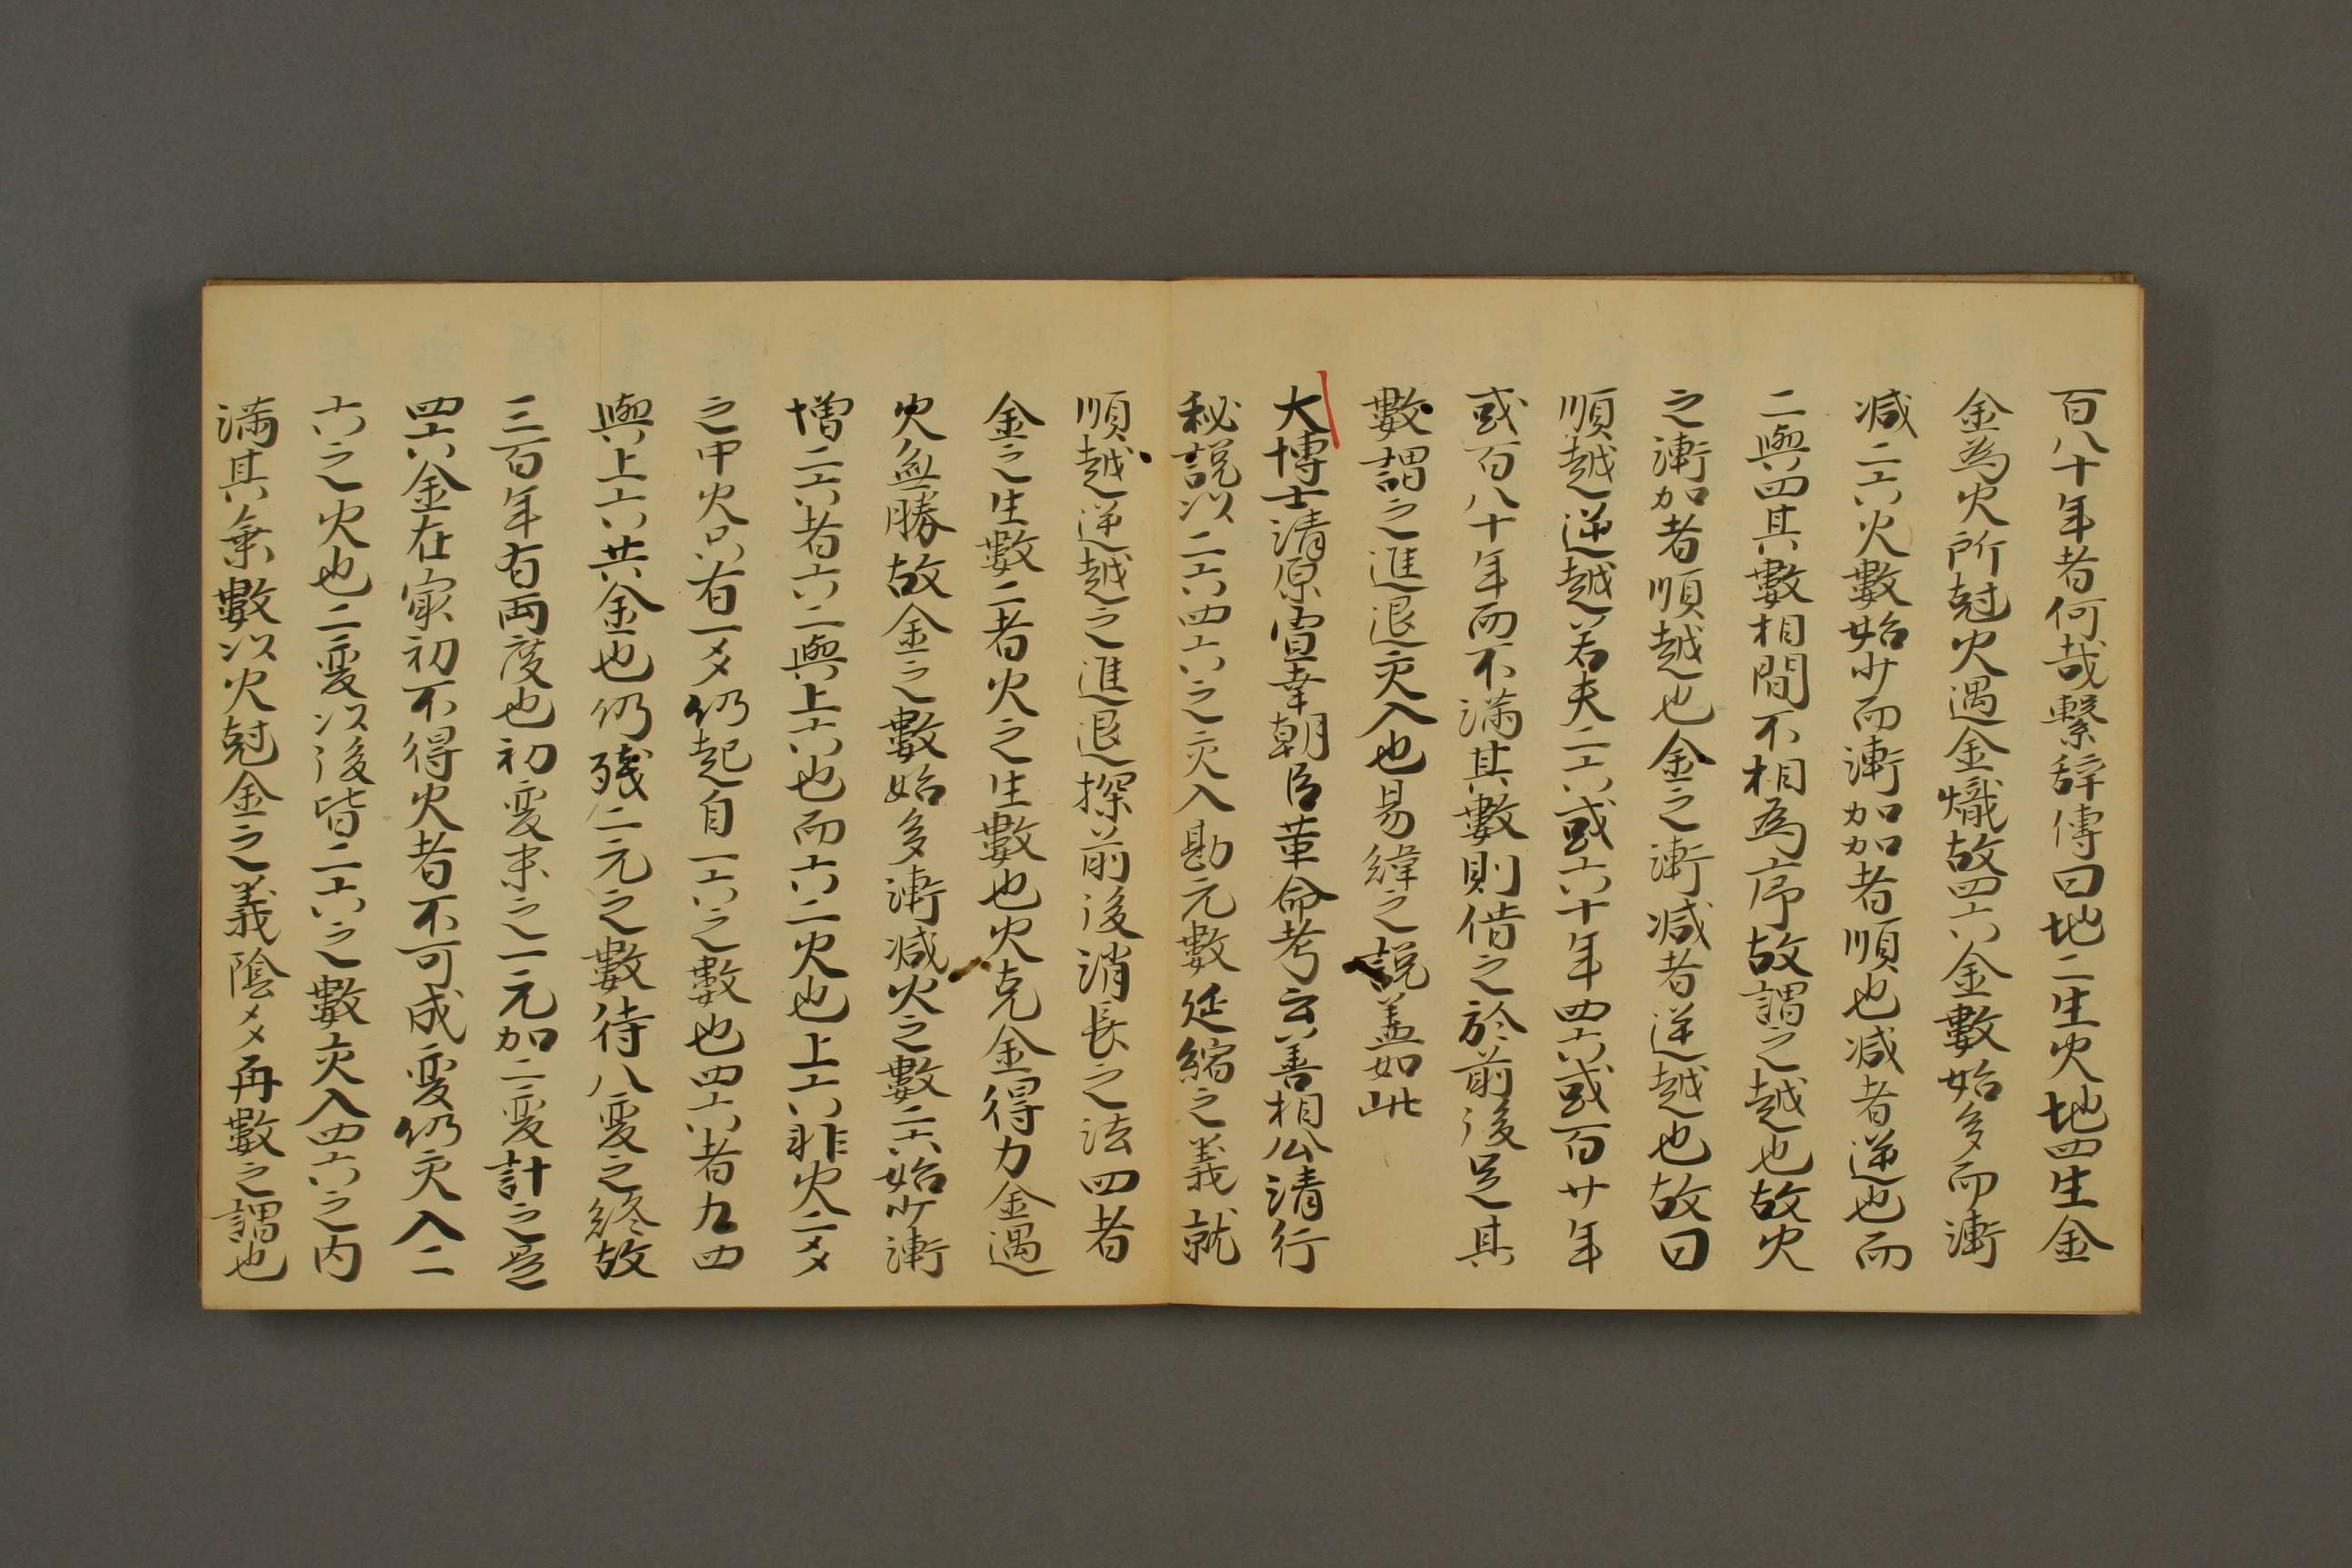 百八十年者何哉繫辞傳曰地二生火地四生金
金為火所尅火遇金熾故四六金數始多而漸
減二六火數始少而漸加加者順也减者逆也而
二與四其數相間不相為序故謂之越也故火
之漸加者順越也金之漸减者逆越也故曰
順越逆越若夫二六或六十年四六或百廿年
或百八十年而不滿其數則借之於前後足其
數謂之進退交入也易緯之說盖如此
大博士清原宣幸朝臣革命考云善相公清行
秘説以二六四六之交入勘元數延縮之義就
順越逆越之進退探前後消長之法四者
金之生數二者火之生數也火克金得力金遇
火無勝故金之數始多漸减火之數二六始少漸
增二六者六二與上六也而六二火也上六非火二爻
之中火只有一爻仍起自一六之數也四六者九四
與上六共金也仍残二元之數待八変之終故
三百年有両度也初変末之一元加二変計之是
四六金在家初不得火者不可成変仍交入二
六之火也二変以後皆二六之數交入四六之内
滿其無數以火尅金之義陰爻再數之謂也